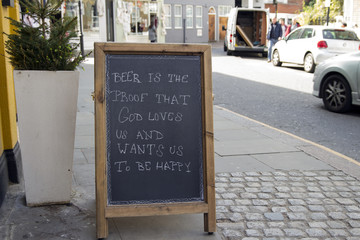 BEER IS THE
PROOF THAT
GOD LOVES
US AND
WANTS US
TO BE HAPPY